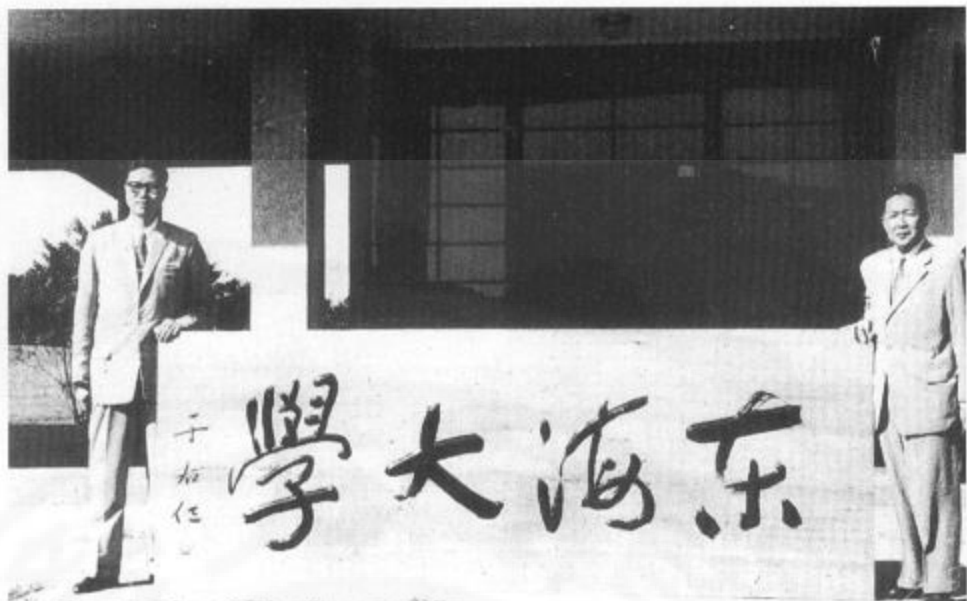 东海大學
于右任